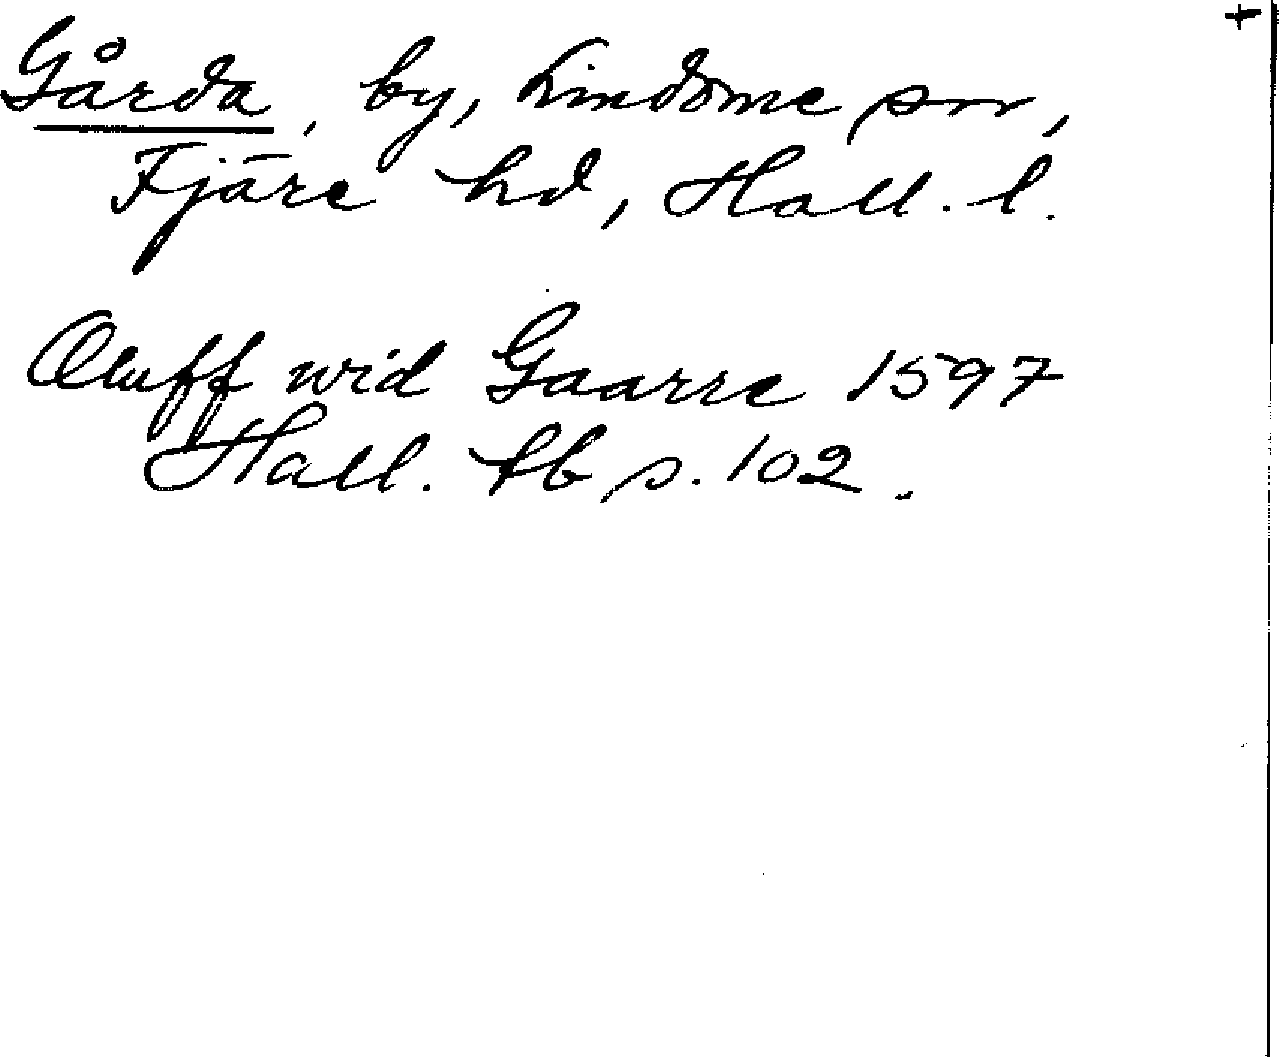 Gårda, by, Lindome sn,
Fjäre hd, Hall. l.
Oluff wid Gaarre 1597
Hall. tb s. 102.